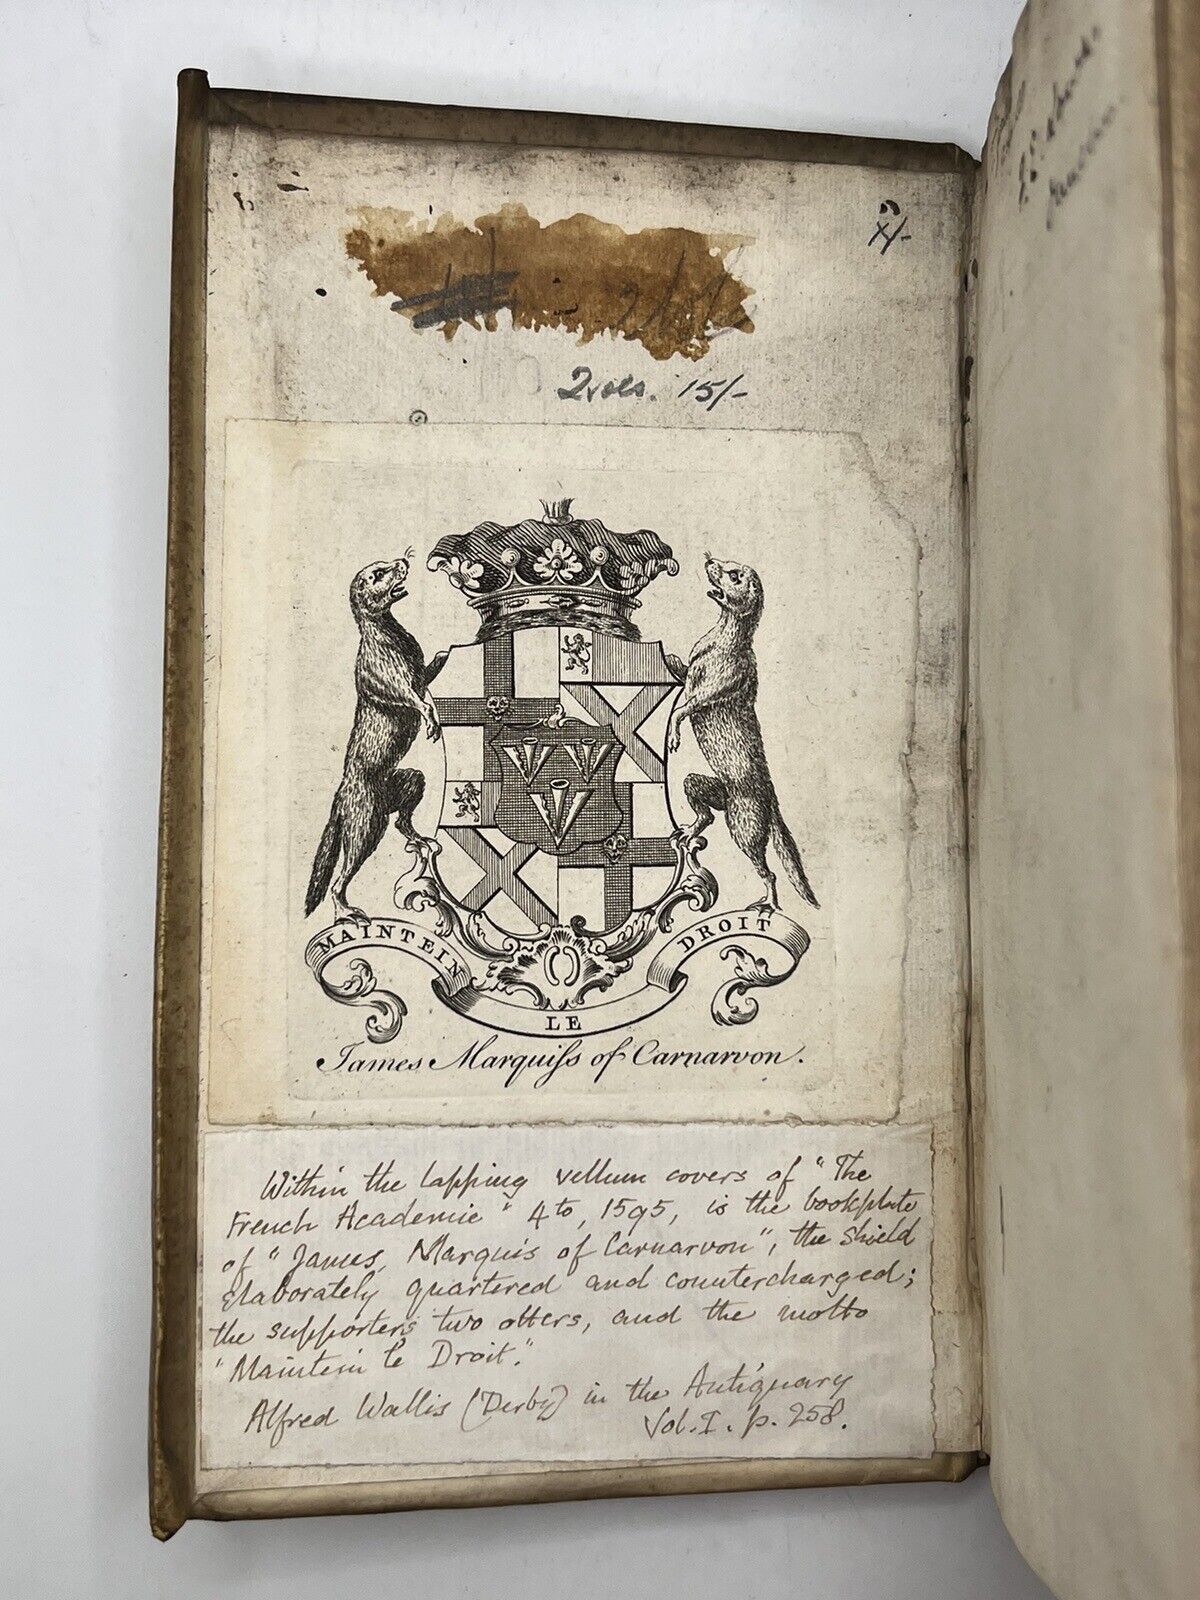 x/-
2 vols. 15/-
MAINTEIN LE DROIT
James Marquiſs of Carnarvon.
Within the lapping vellum covers of "The
French Academie" 4to, 1595, is the bookplate
of "James, Marquis of Carnarvon", the shield
elaborately quartered and countercharged;
the supporters two otters, and the motto
"Maintein le Droit."
Alfred Wallis (Derby) in the Antiquary
Vol. I. p. 258.